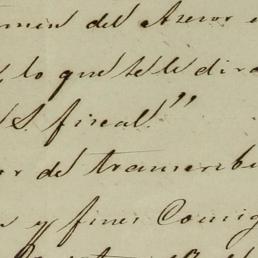 men del Asesor e
, lo que se le dira
S. fiscal."
or de transcribi
y fines Consig